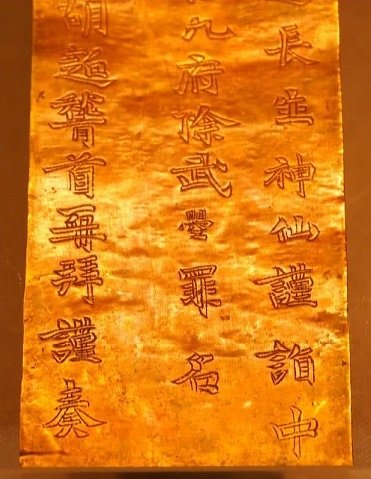 長生神仙謹詣中
九府除武曌罪名
胡超稽首再拜謹奏